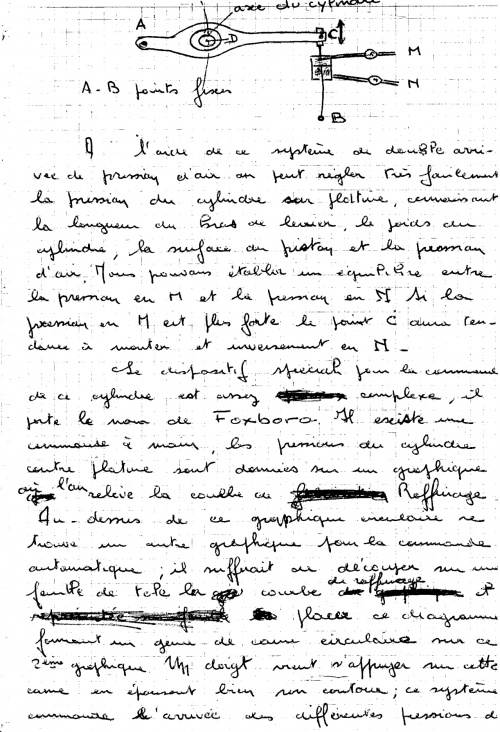 axe du cylindre
A
D
C
M
N
A - B points fixes
B
A l'aide de ce système de double arri-
vée de pression d'air on peut régler très facilement
la pression du cylindre sur platine, connaissant
la longueur du bras de levier, le poids du
cylindre, la surface du piston et la pression
d'air. Nous pouvons établir un équilibre entre
la pression en M et la pression en N Si la
pression en M est plus forte le point C aura ten-
dance à monter et inversement en N -
Le dispositif spécial pour la commande
de ce cylindre est assez complexe, il
porte le nom de Foxboro. Il existe une
commande à main, les pressions du cylindre
contre platine sont données sur un graphique
où l'on relève la courbe de Raffinage
Au-dessus de ce graphique circulaire se
trouve un autre graphique pour la commande
automatique ; il suffirait de découper sur une
feuille de tole la courbe de raffinage et
placer ce diagramme
formant un genre de came circulaire sur ce
2ème graphique Un doigt vient s'appuyer sur cette
came en épousant bien son contour ; ce système
commande l'arrivée des différentes pressions d